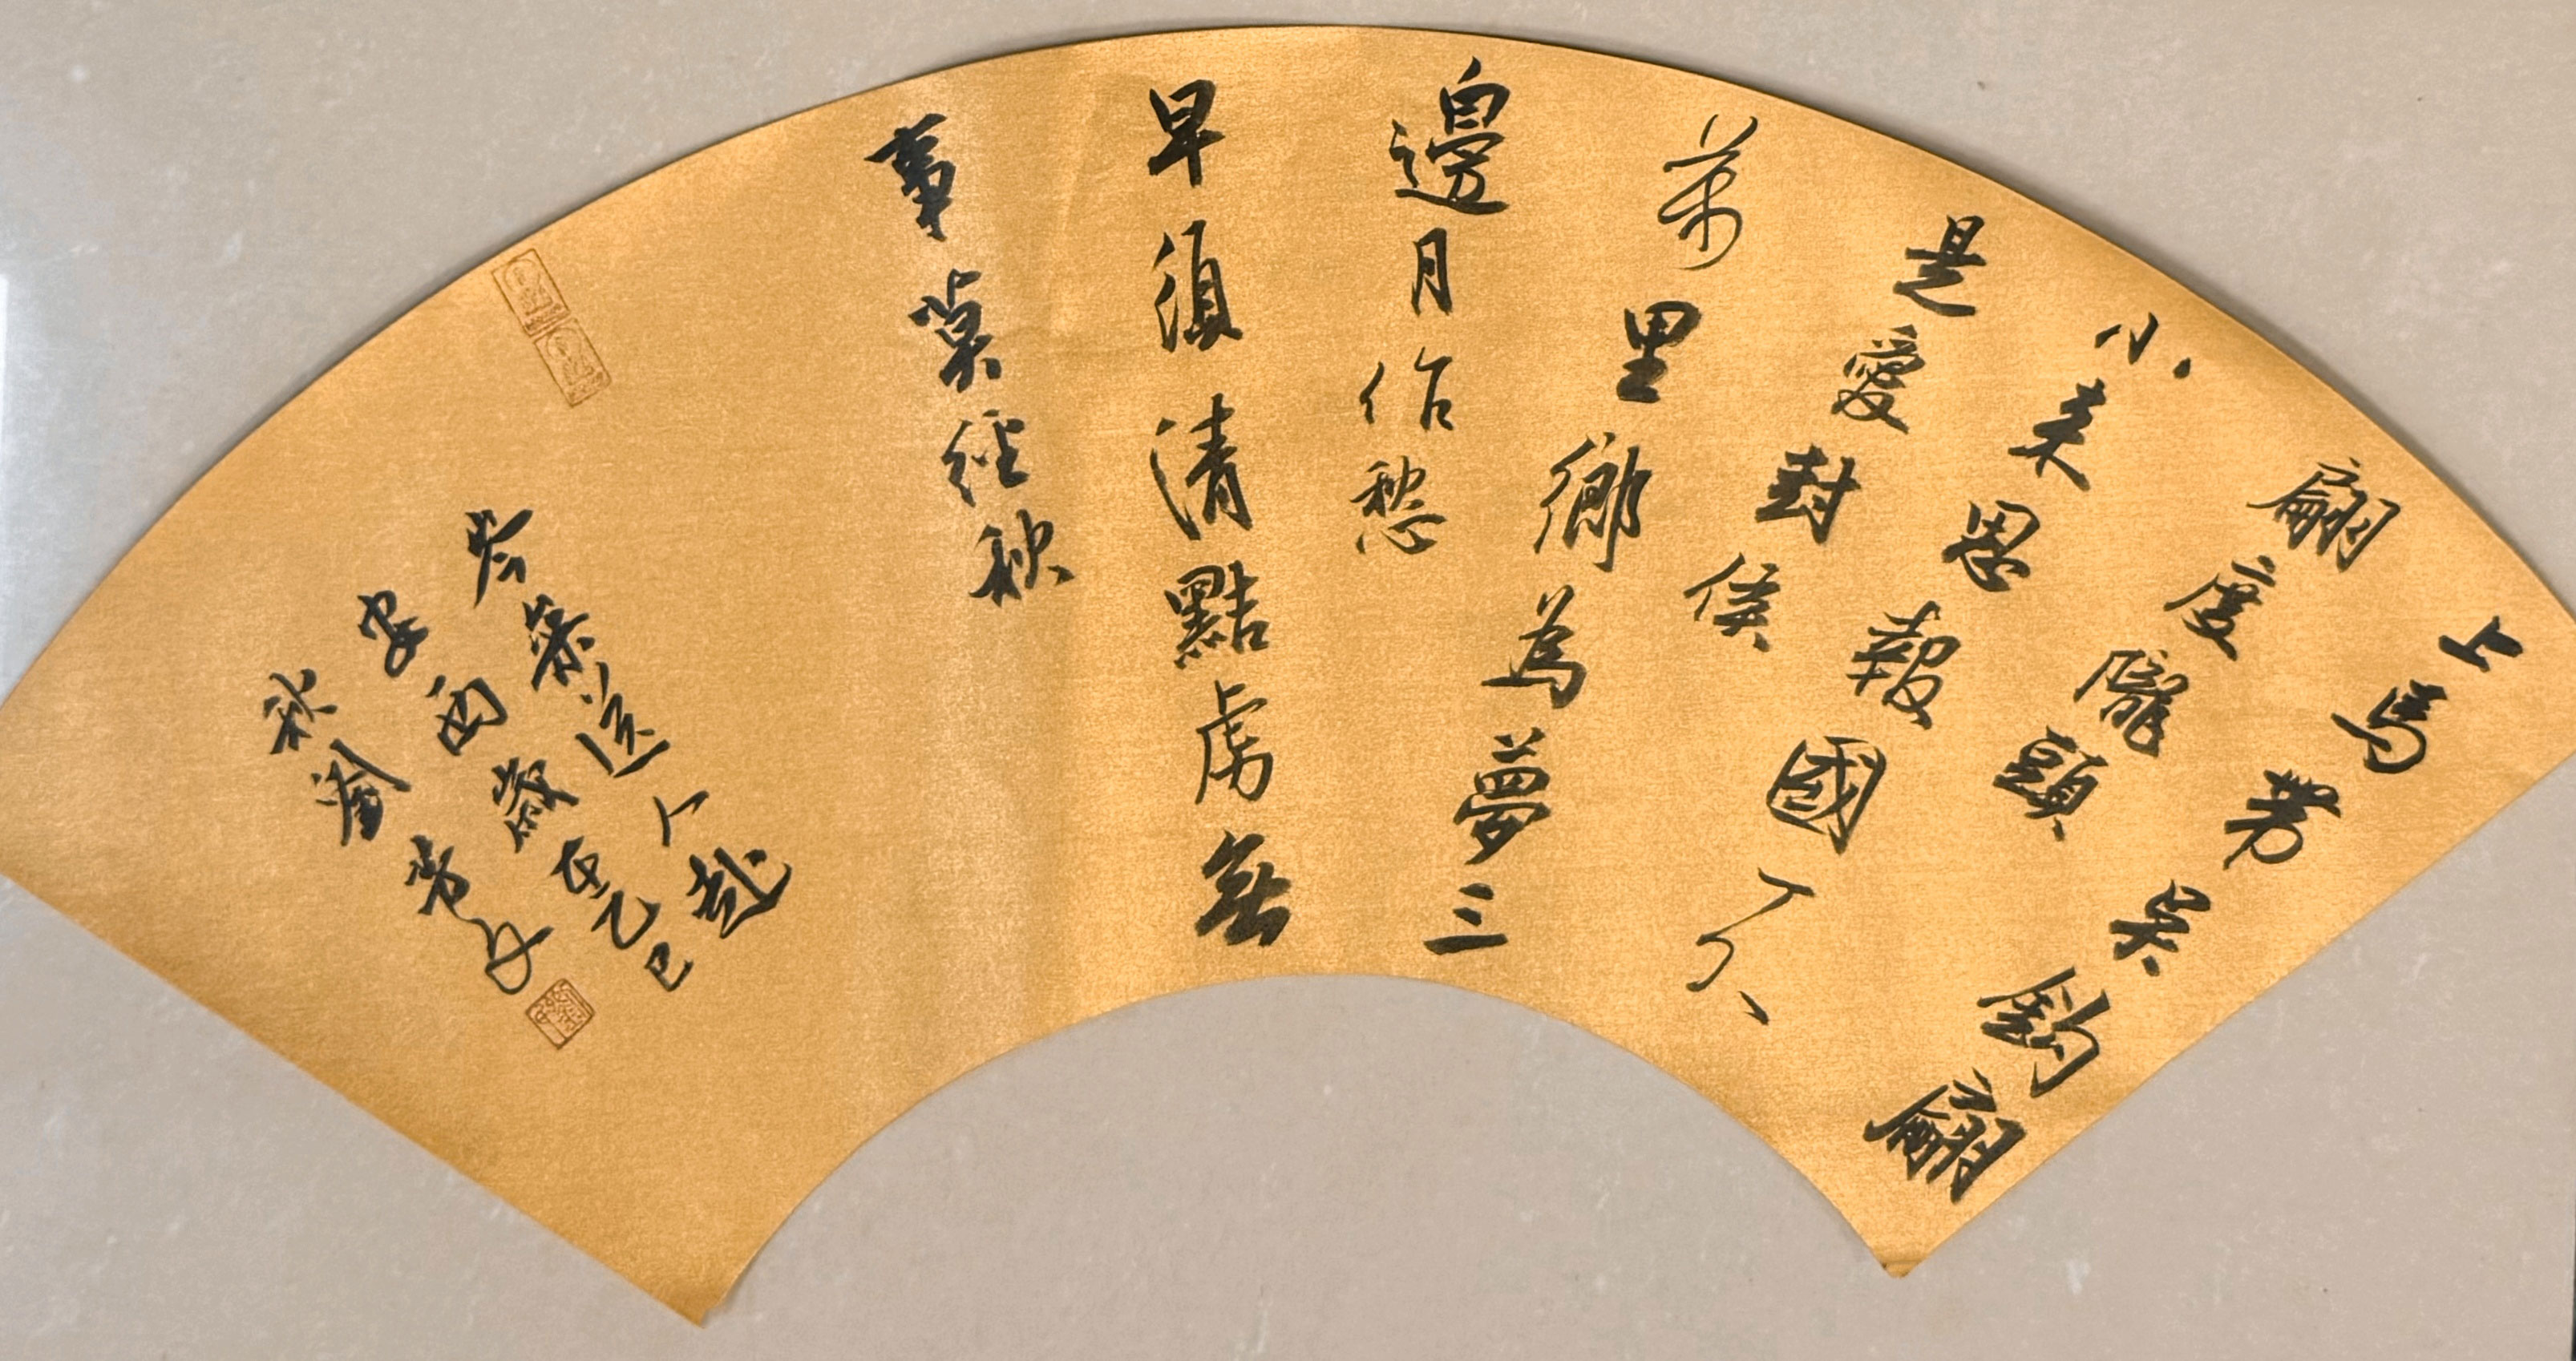 上馬帶吳鈎翩
翩度隴頭
小来思報國不
是愛封侯
萬里鄉為夢三
邊月作愁
早須清黠虜無
事莫經秋
岑參送人赴
安西歲在乙巳
秋劉